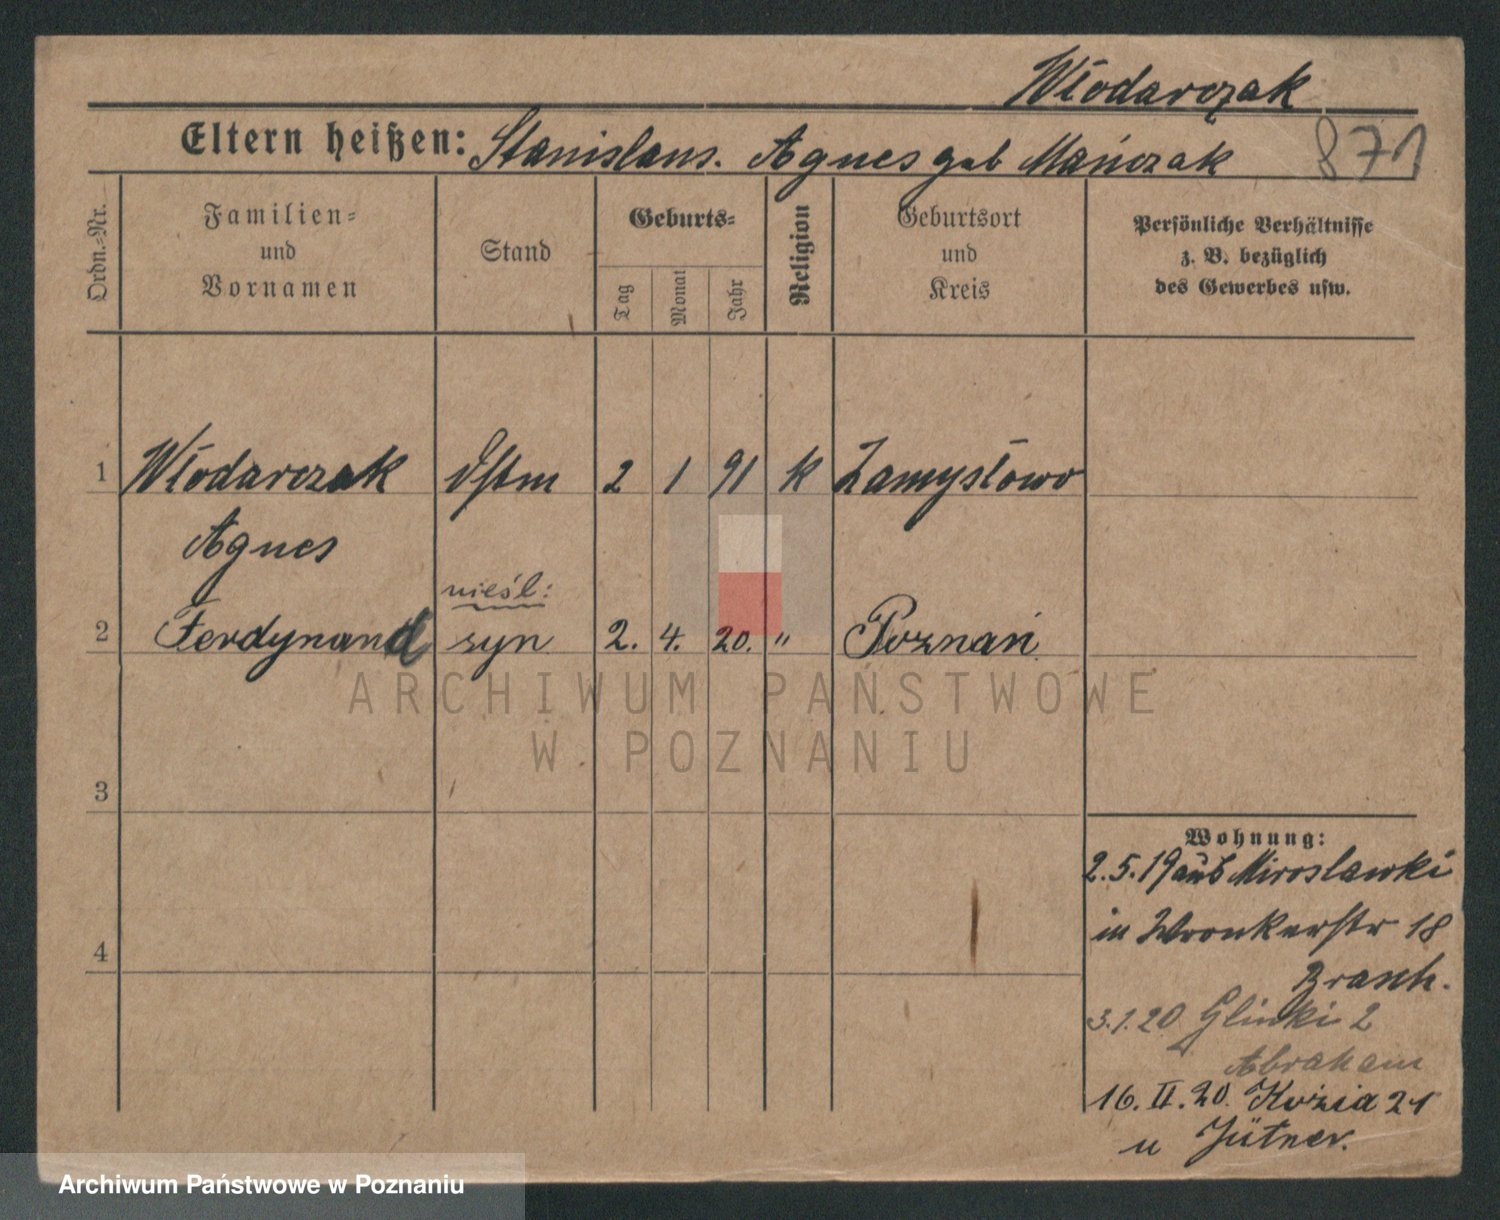 Włodarczak
Eltern heißen: Stanislaus. Agnes geb Mańczak
871
Ordn.-Nr.
Familien- und Vornamen
Stand
Geburts-
Tag
Monat
Jahr
Religion
Geburtsort und Kreis
Persönliche Verhältnisse
z. B. bezüglich
des Gewerbes usw.
1 Włodarczak 2 1 91 k Zamysłowo
Agnes
nieśl:
2 Ferdynand syn 2. 4. 20. " Poznań
ARCHIWUM PAŃSTWOWE
W POZNANIU
3
4
Wohnung:
2.5.19 aus Miroslawki
in Wronkerstr 18
Brasch.
3.1.20 Glinki 2
Abraham
16. II. 20. Kozia 21
u Jütner.
Archiwum Państwowe w Poznaniu